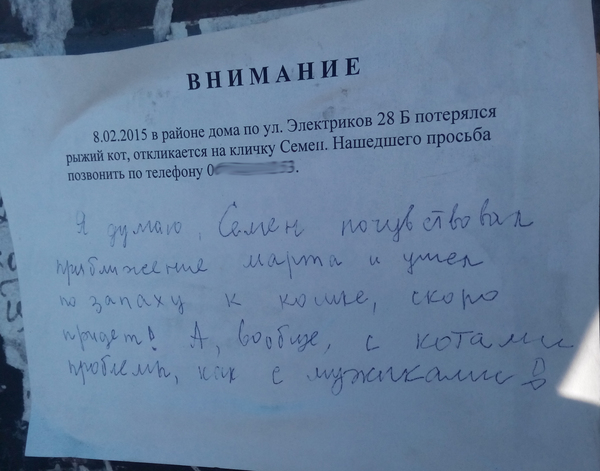 ВНИМАНИЕ
8.02.2015 в районе дома по ул. Электриков 28 Б потерялся
рыжий кот, откликается на кличку Семен. Нашедшего просьба
позвонить по телефону 0
Я думаю, Семен почувствовал
приближение марта и ушел
по запаху к кошке, скоро
придет! А, вообще, с котами
проблемы, как с мужиками